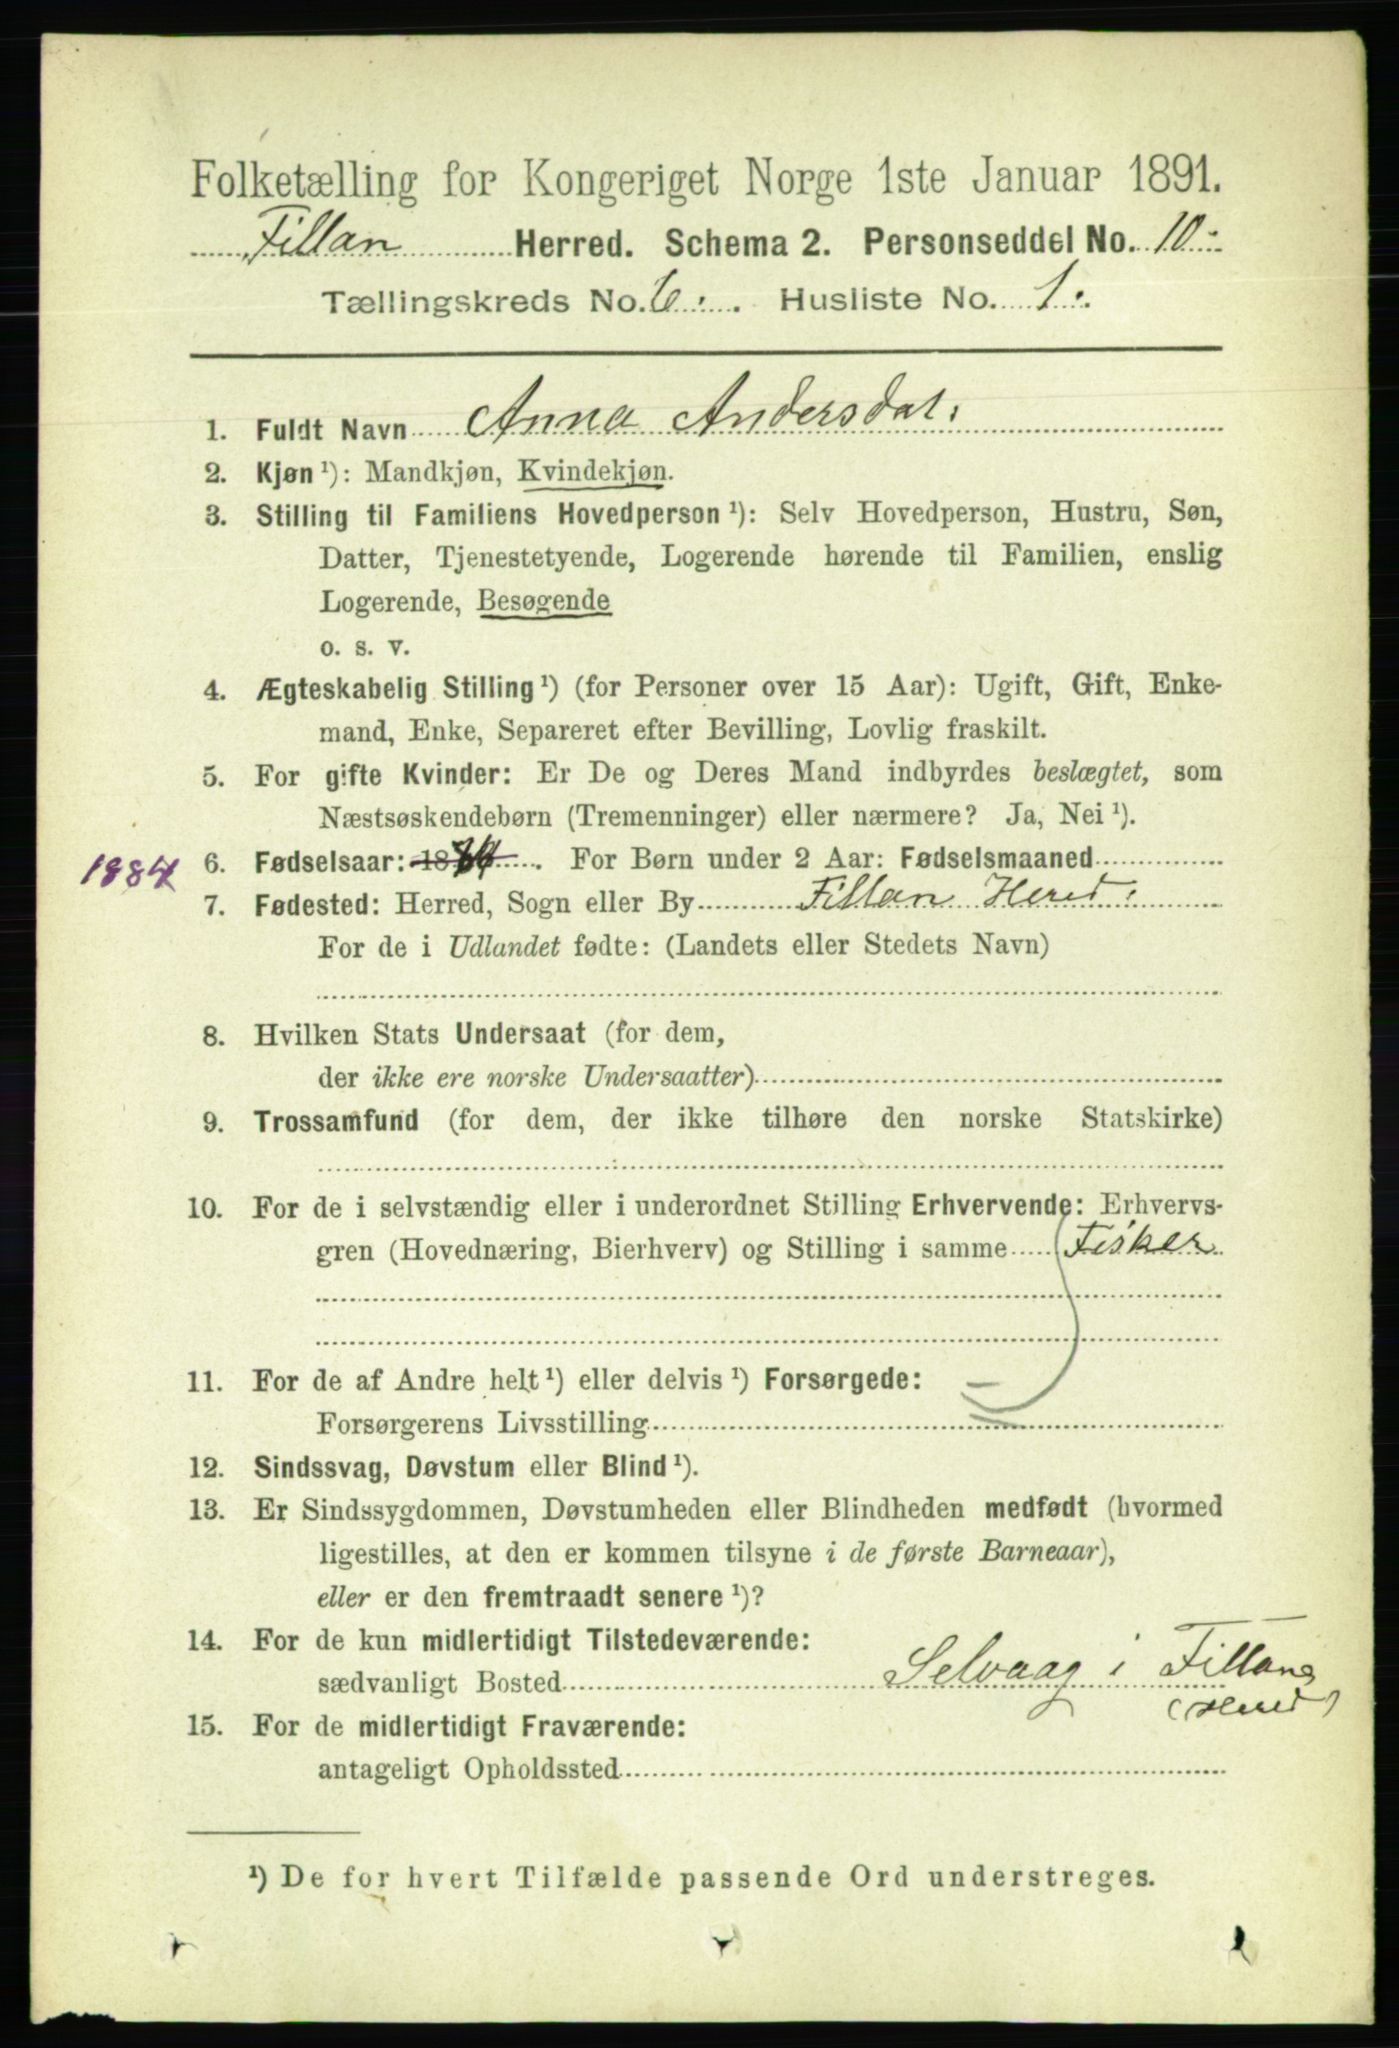 Folketælling for Kongeriget Norge 1ste Januar 1891.
Fillan Herred. Schema 2. Personseddel No. 10.
Tællingskreds No. 6. Husliste No. 1.
1. Fuldt Navn Anna Andersdat.
2. Kjøn ¹): Mandkjøn, Kvindekjøn.
3. Stilling til Familiens Hovedperson ¹): Selv Hovedperson, Hustru, Søn,
Datter, Tjenestetyende, Logerende hørende til Familien, enslig
Logerende, Besøgende
o. s. v.
4. Ægteskabelig Stilling ¹) (for Personer over 15 Aar): Ugift, Gift, Enke-
mand, Enke, Separeret efter Bevilling, Lovlig fraskilt.
5. For gifte Kvinder: Er De og Deres Mand indbyrdes beslægtet, som
Næstsøskendebørn (Tremenninger) eller nærmere? Ja, Nei ¹).
1884 6. Fødselsaar: 18 . For Børn under 2 Aar: Fødselsmaaned
7. Fødested: Herred, Sogn eller By Fillan Hered.
For de i Udlandet fødte: (Landets eller Stedets Navn)
8. Hvilken Stats Undersaat (for dem,
der ikke ere norske Undersaatter)
9. Trossamfund (for dem, der ikke tilhøre den norske Statskirke)
10. For de i selvstændig eller i underordnet Stilling Erhvervende: Erhvervs-
gren (Hovednæring, Bierhverv) og Stilling i samme Fisker
11. For de af Andre helt ¹) eller delvis ¹) Forsørgede:
Forsørgerens Livsstilling
12. Sindssvag, Døvstum eller Blind ¹).
13. Er Sindssygdommen, Døvstumheden eller Blindheden medfødt (hvormed
ligestilles, at den er kommen tilsyne i de første Barneaar),
eller er den fremtraadt senere ¹)?
14. For de kun midlertidigt Tilstedeværende:
sædvanligt Bosted Selvaag i Fillans
(Hered)
15. For de midlertidigt Fraværende:
antageligt Opholdssted
¹) De for hvert Tilfælde passende Ord understreges.